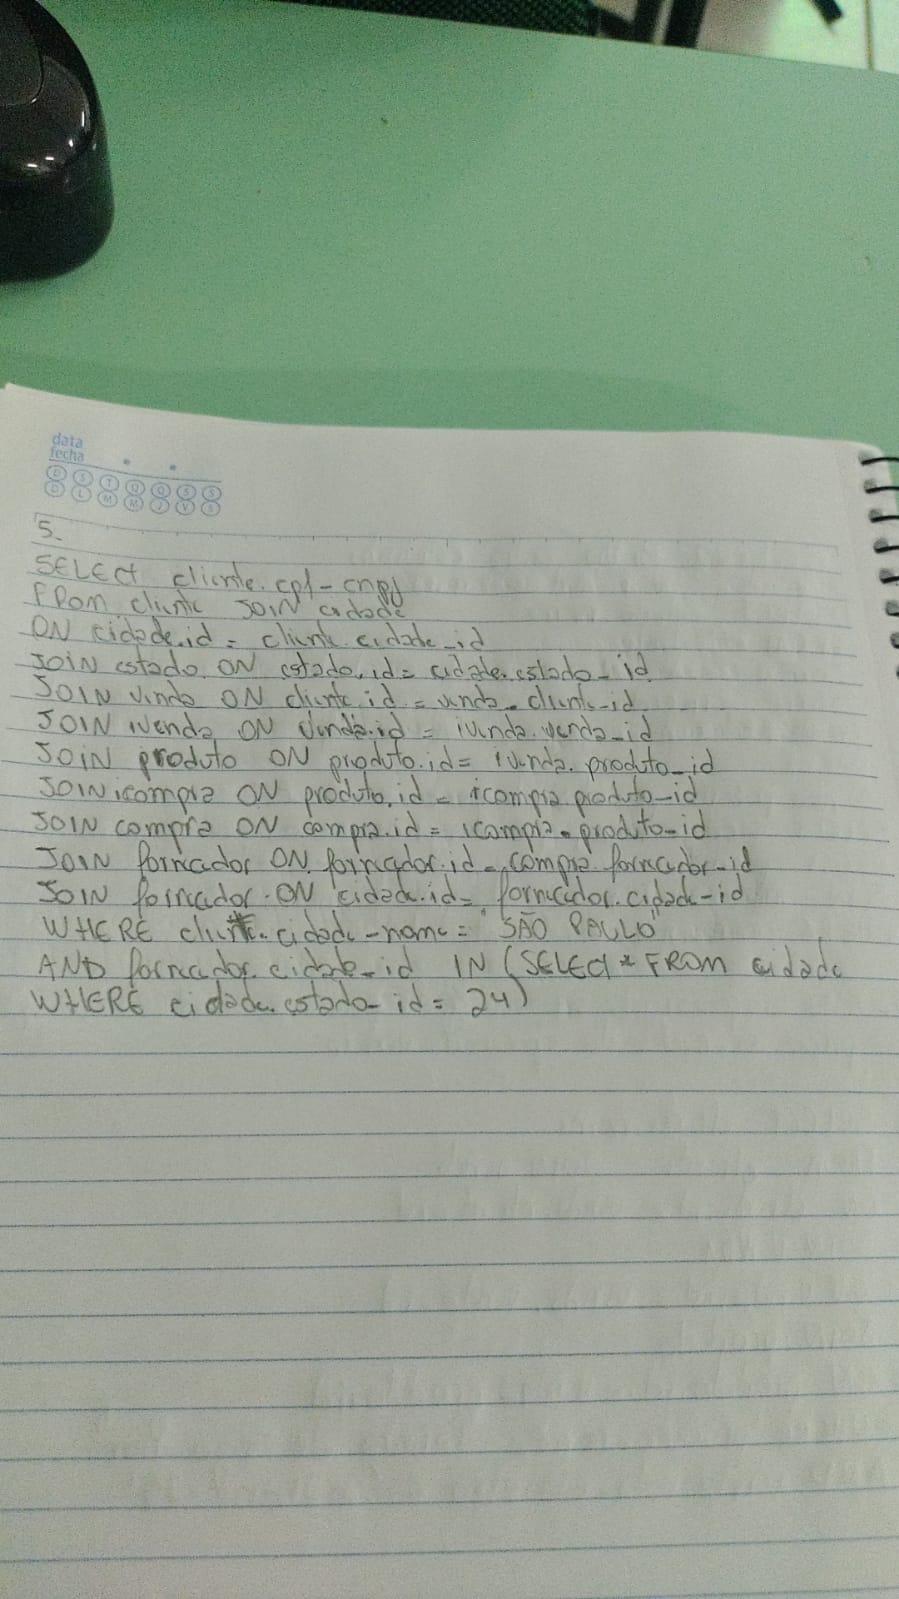 data
fecha
D S T Q Q S S
D L M M J V S
5.
SELECT cliente.cpf-cnpj
FROM cliente JOIN cidade
ON cidade.id = cliente.cidade_id
JOIN estado ON estado.id = cidade.estado_id
JOIN venda ON cliente.id = venda.cliente_id
JOIN ivenda ON venda.id = ivenda.venda_id
JOIN produto ON produto.id = ivenda.produto_id
JOIN icompra ON produto.id = icompra.produto_id
JOIN compra ON compra.id = icompra.produto_id
JOIN fornecador ON fornecador.id = compra.fornecador_id
JOIN fornecador ON cidade.id = fornecador.cidade_id
WHERE cliente.cidade_nome = "SÃO PAULO"
AND fornecador.cidade_id IN (SELECT * FROM cidade
WHERE cidade.estado_id = 24)